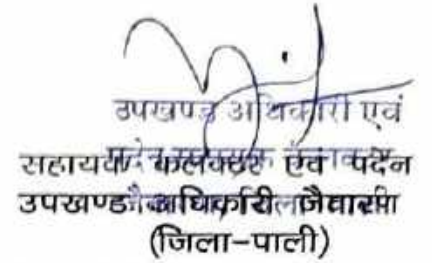 उपखण्ड अधिकारी एवं
सहायक कलक्टर एवं पदेन
उपखण्ड अधिकारी जैतारण
(जिला-पाली)